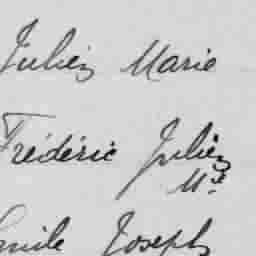 Julien Marie
Frédéric Julien
Mie
Emile Joseph